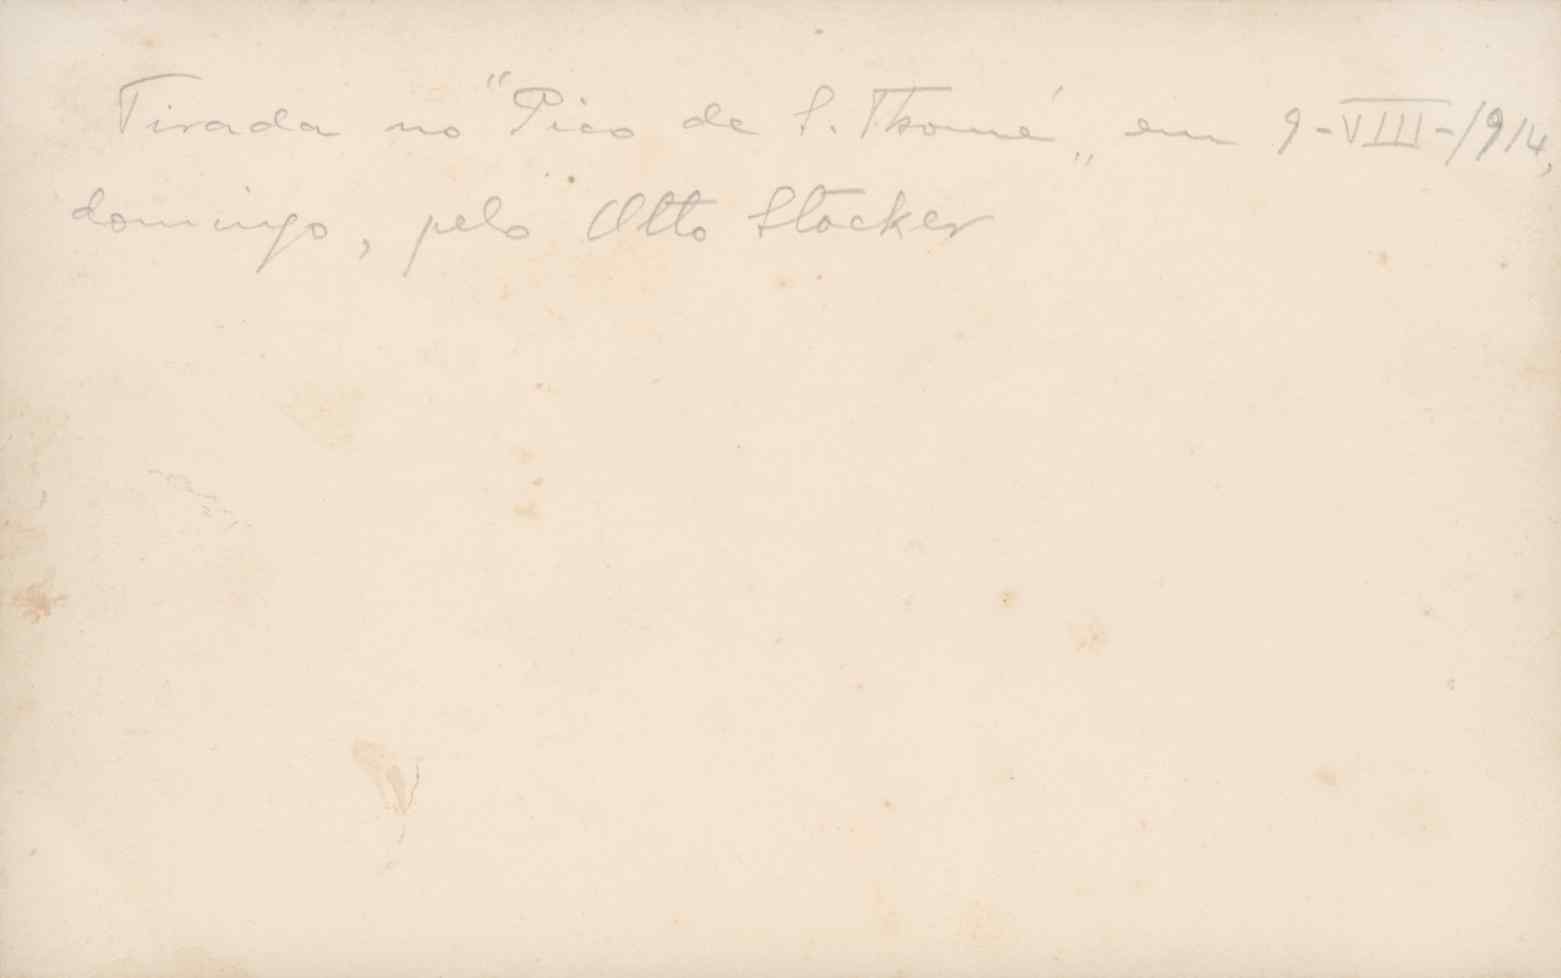 Tirada no "Pico de S. Thomé„ em 9-VIII-1914,
domingo, pelo Otto Stocker